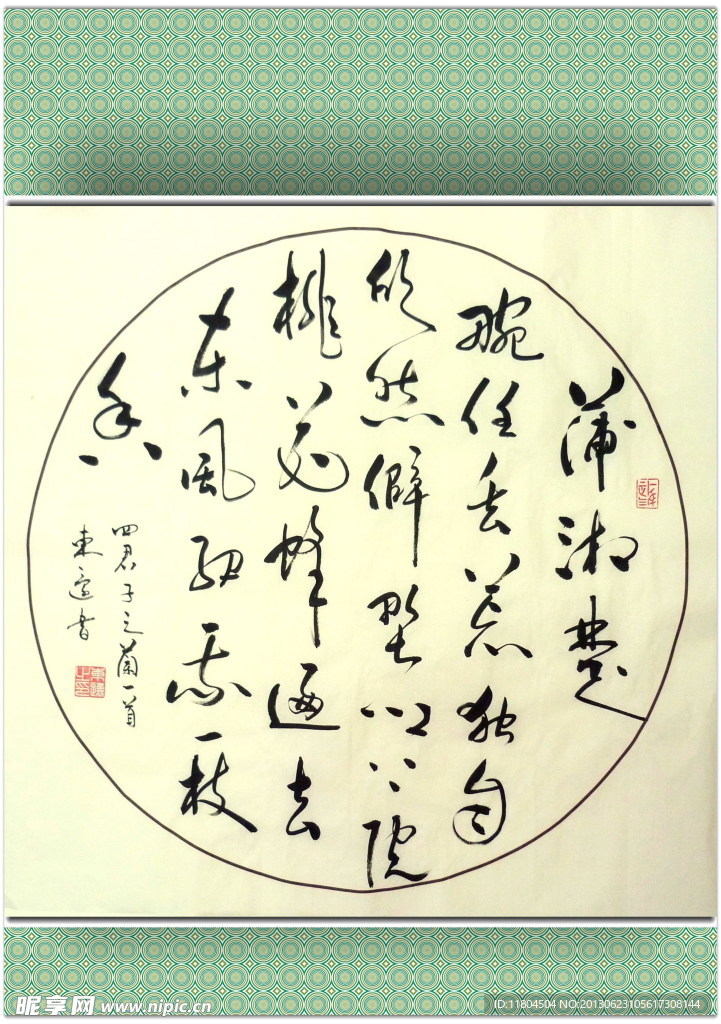 湘楚
畹任丢荒独自
欣然僻野 院
桃花蜂遍去
东风 一枝
香
四君子之蘭一首
東 書
昵享网 www.nipic.cn
ID:11804504 NO:20130623105617308144